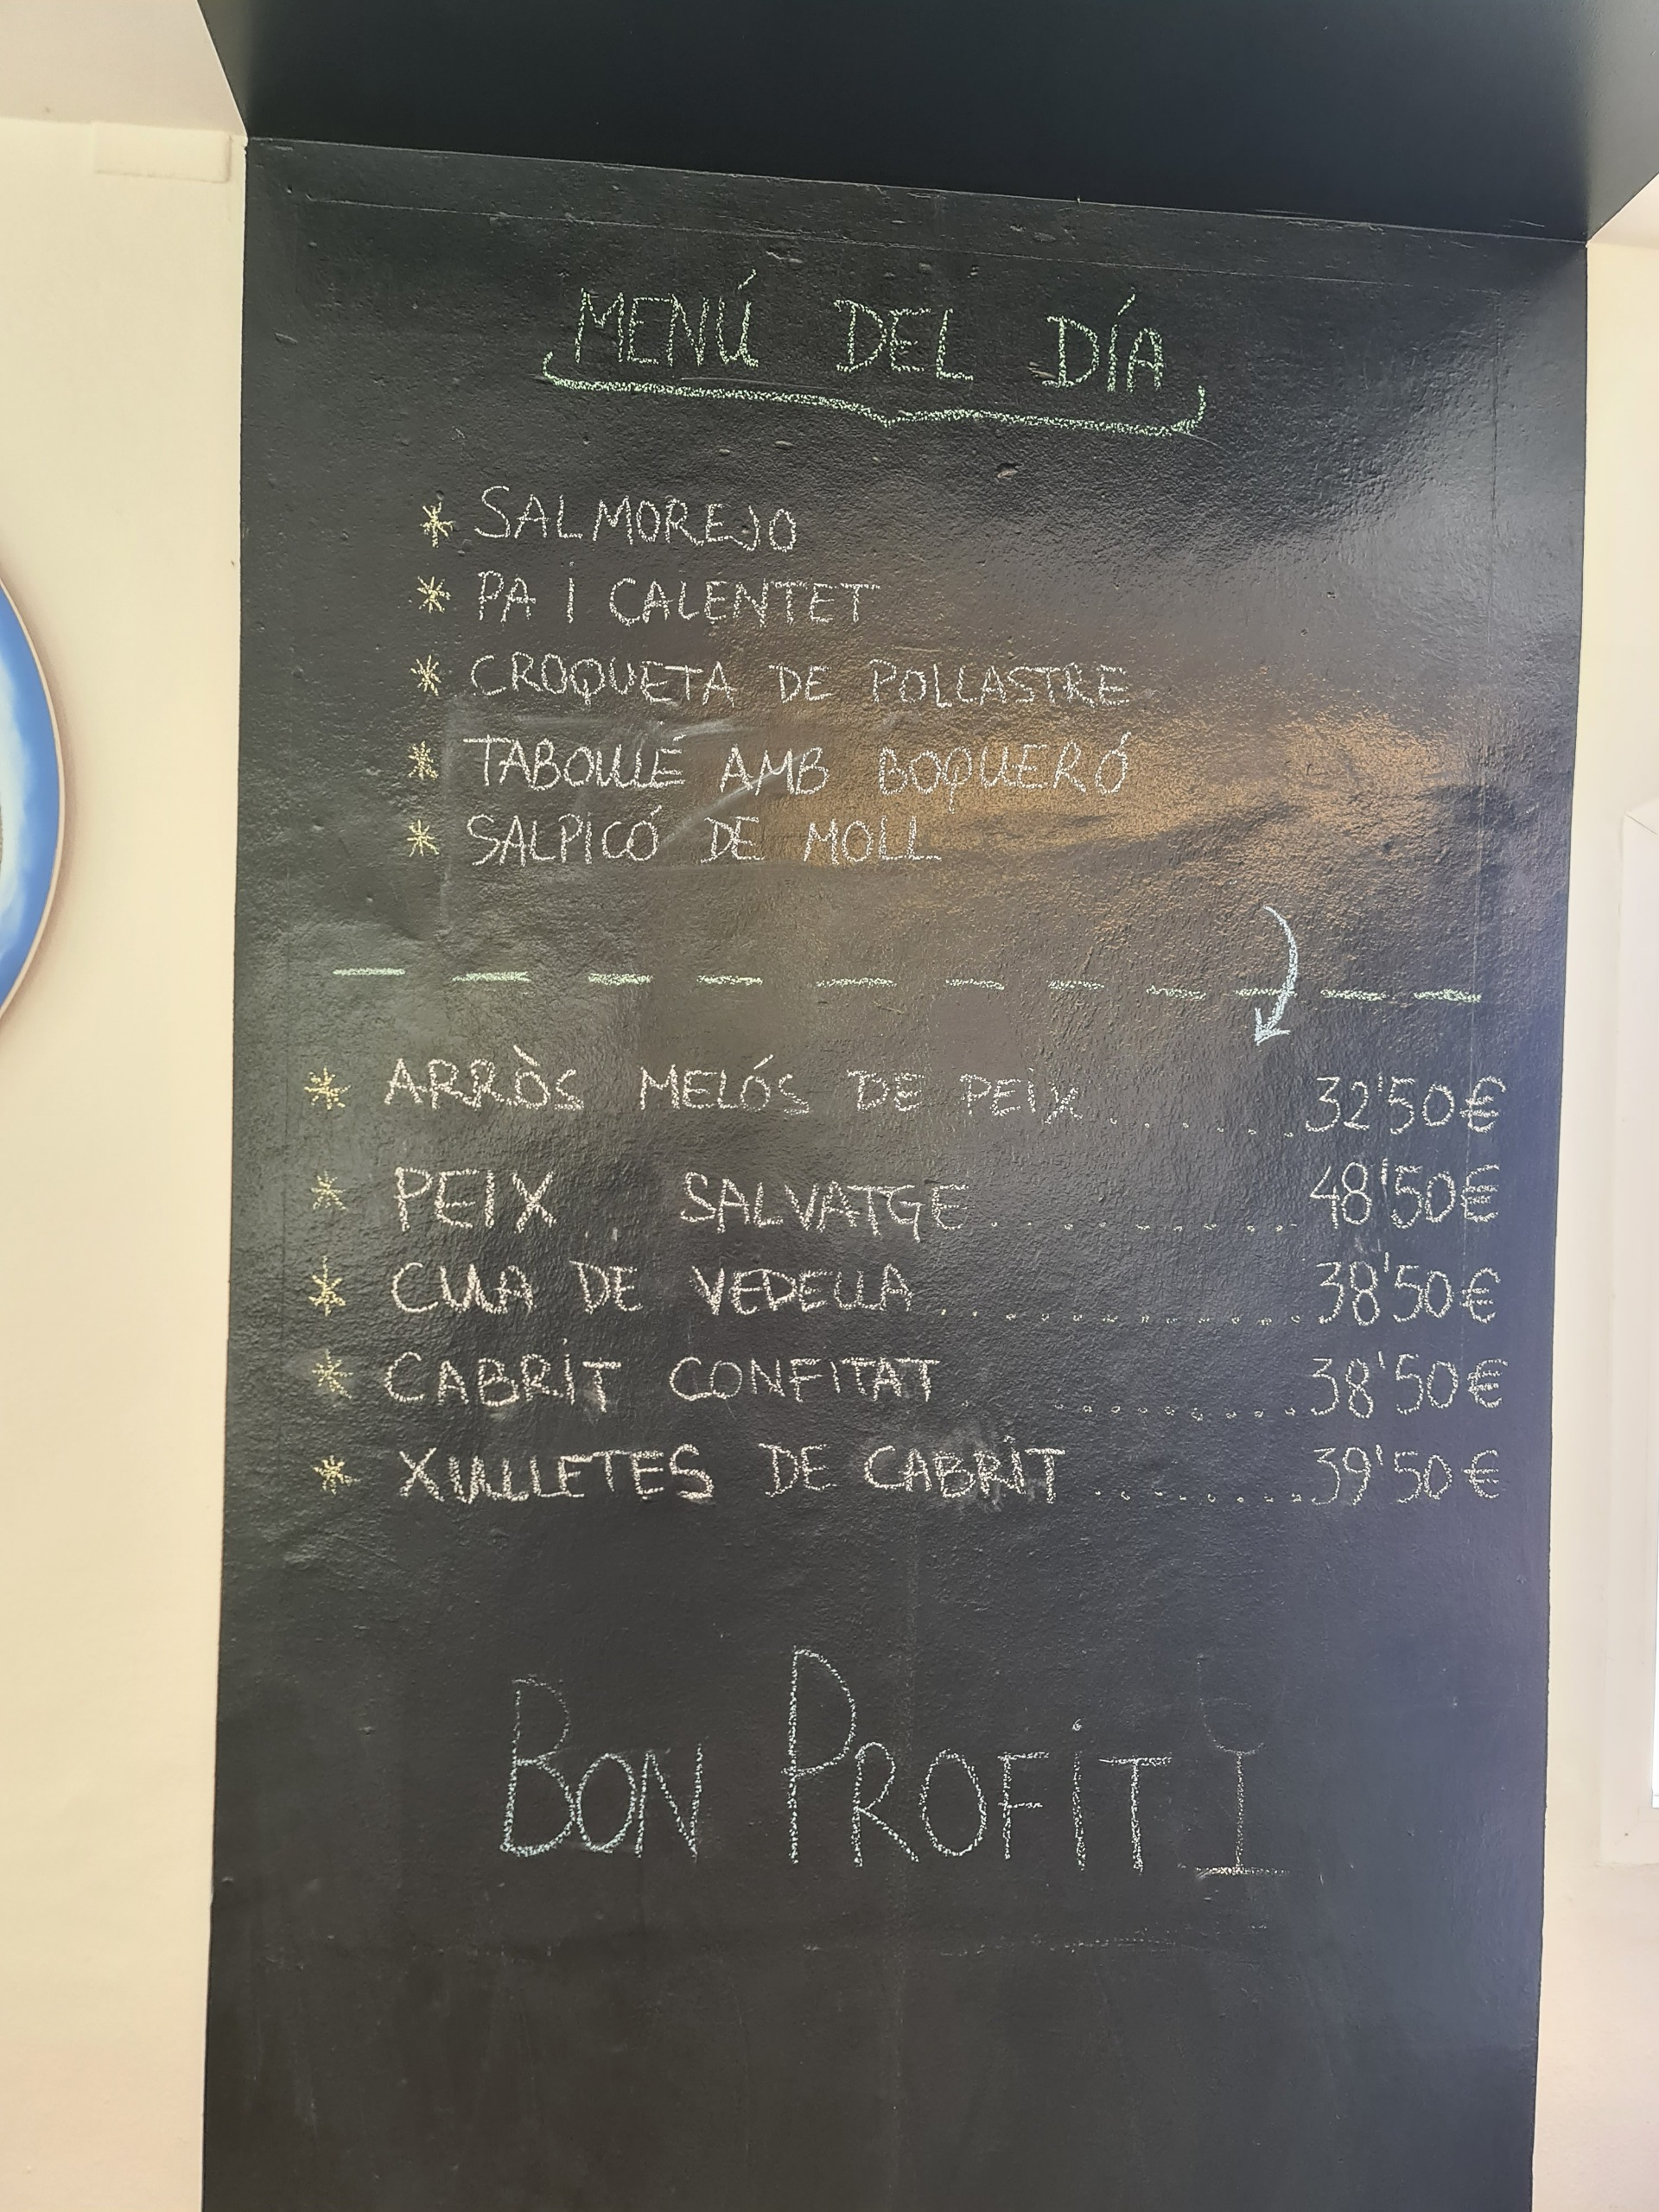 MENÚ DEL DÍA
* SALMOREJO
* PA I CALENTET
* CROQUETA DE POLLASTRE
* TABOULLÉ AMB BOQUERÓ
* SALPICÓ DE MOLL
* ARRÒS MELÓS DE PEIX ...... 32'50€
* PEIX SALVATGE ............ 48'50€
* CUA DE VEDELLA ............ 38'50€
* CABRIT CONFITAT ............ 38'50€
* XULLETES DE CABRIT ........ 39'50€
BON PROFIT